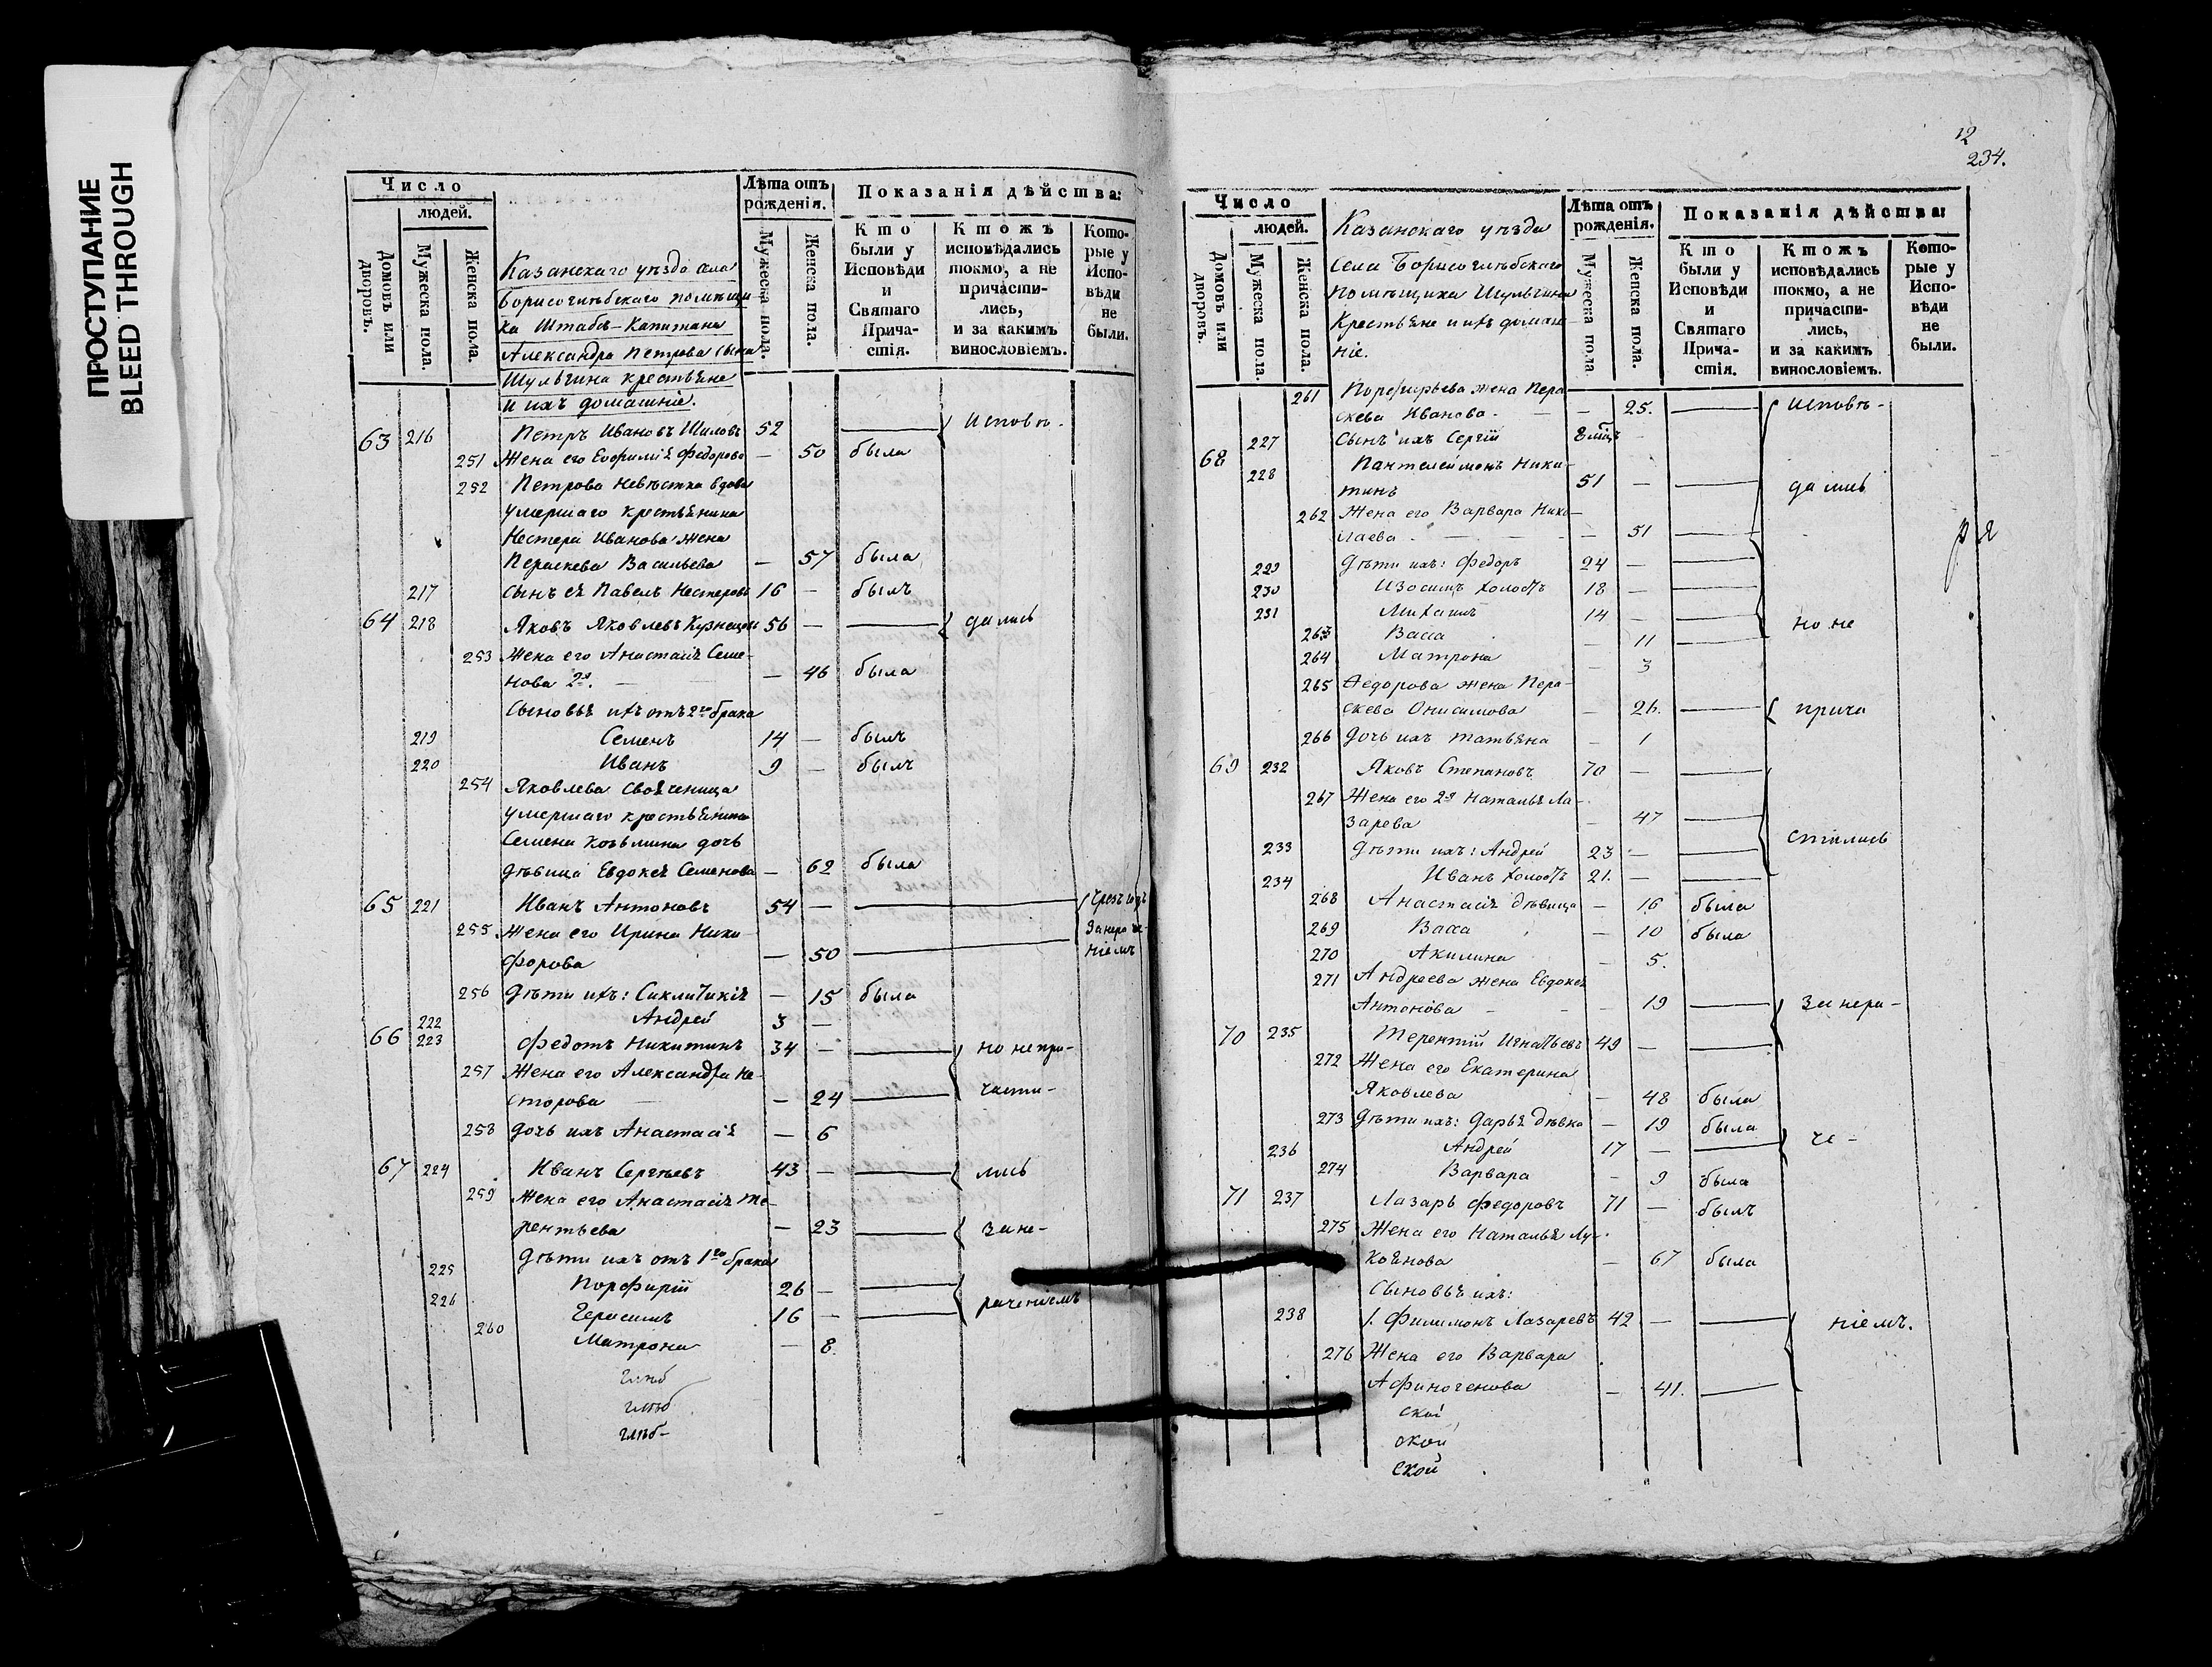 ПРОСТУПАНИЕ
BLEED THROUGH
Число
людей.
Домовъ или дворовъ.
Мужеска пола.
Женска пола.
Казанскаго уѣзда села
Борисоглѣбскаго помѣщи
ка Штабсъ-Капитана
Александра Петрова сына
Шульгина крестьяне
и ихъ домашніе.
Лѣта отъ рожденія.
Мужеска пола.
Женска пола.
Показанія дѣйства:
Кто были у Исповѣди и Святаго Прича-стія.
Ктожъ исповѣдались токмо, а не причасти-лись, и за какимъ винословіемъ.
Кото-рые у Испо-вѣди не были.
63 216 Петръ Ивановъ Шиловъ 52 — Исповѣ-
251 Жена его Евфимія Федорова — 50 была
252 Петрова невѣстка вдова
умершаго крестьянина
Нестера Иванова жена
Параскева Васильева — 57 была
217 сынъ ея Павелъ Нестеровъ 16 — былъ
64 218 Яковъ Яковлевъ Кузнецовъ 56 — — дались
253 Жена его Анастасія Семе-
нова 2я. — 46 была
Сыновья ихъ отъ 2го брака
219 Семенъ 14 — былъ
220 Иванъ 9 — былъ
254 Яковлева свояченица
умершаго крестьянина
Семена Козьмина дочь
дѣвица Евдокея Семенова — 62 была
65 221 Иванъ Антоновъ 54 — — Чрезъ годъ
255 Жена его Ирина Ники за нераче-
форова — 50 — ніемъ
256 Дѣти ихъ: Синклитикія — 15 была
222 Андрей 3 —
66 223 Федотъ Никитинъ 34 — — но не при-
257 Жена его Александра Не-
сторова — 24 — части-
258 дочь ихъ Анастасія — 6
67 224 Иванъ Сергѣевъ 43 — — лись
259 Жена его Анастасія Те-
рентьева — 23 — за не-
Дѣти ихъ отъ 1го брака
225 Порфирій 26 — —
226 Герасимъ 16 — — раченіемъ
260 Матрона — 8.
глѣб
глѣб
глѣб-
12
234.
Число
людей.
Домовъ или дворовъ.
Мужеска пола.
Женска пола.
Казанскаго уѣзда
Села Борисоглѣбскаго
помѣщика Шульгина
Крестьяне и ихъ домаш-
ніе.
Лѣта отъ рожденія.
Мужеска пола.
Женска пола.
Показанія дѣйства:
Кто были у Исповѣди и Святаго Прича-стія.
Ктожъ исповѣдались токмо, а не причасти-лись, и за какимъ винословіемъ.
Кото-рые у Испо-вѣди не были.
261 Порфирьева жена Пара
скева Иванова. — — 25. — Исповѣ-
227 Сынъ ихъ Сергій 8 мѣцъ —
68 228 Пантелеймонъ Ники-
тинъ 51 — — дались
262 Жена его Варвара Нико-
лаева — 51 —
ря
229 Дѣти ихъ: Федоръ 24 — —
230 Изосимъ холостъ 18 — —
231 Михаилъ 14 — — но не
263 Васса — 11 —
264 Матрона — 3
265 Федорова жена Пара-
скева Онисимова — 26. — прича
266 Дочь ихъ Татьяна — 1
69 232 Яковъ Степановъ 70 — —
267 Жена его 2я Наталья Ла-
зарева — 47 —
стились
233 Дѣти ихъ: Андрей 23 — —
234 Иванъ холостъ 21. — —
268 Анастасія дѣвица — 16 была
269 Васса — 10 была
270 Акилина — 5.
271 Андреева жена Евдокея
Антонова — — 19 — за нера-
70 235 Терентій Игнатьевъ 49 — —
272 Жена его Екатерина
Яковлева — 48 была
273 Дѣти ихъ: Дарья дѣвка — 19 была
236 Андрей 17 — — че-
274 Варвара — 9 была
71 237 Лазарь Федоровъ 71 — былъ
275 Жена его Наталья Лу-
коянова — 67 была
Сыновья ихъ:
238 1. Филимонъ Лазаревъ 42 — — ніемъ.
276 Жена его Варвара
Афиногенова — 41. —
ской
ской
ской